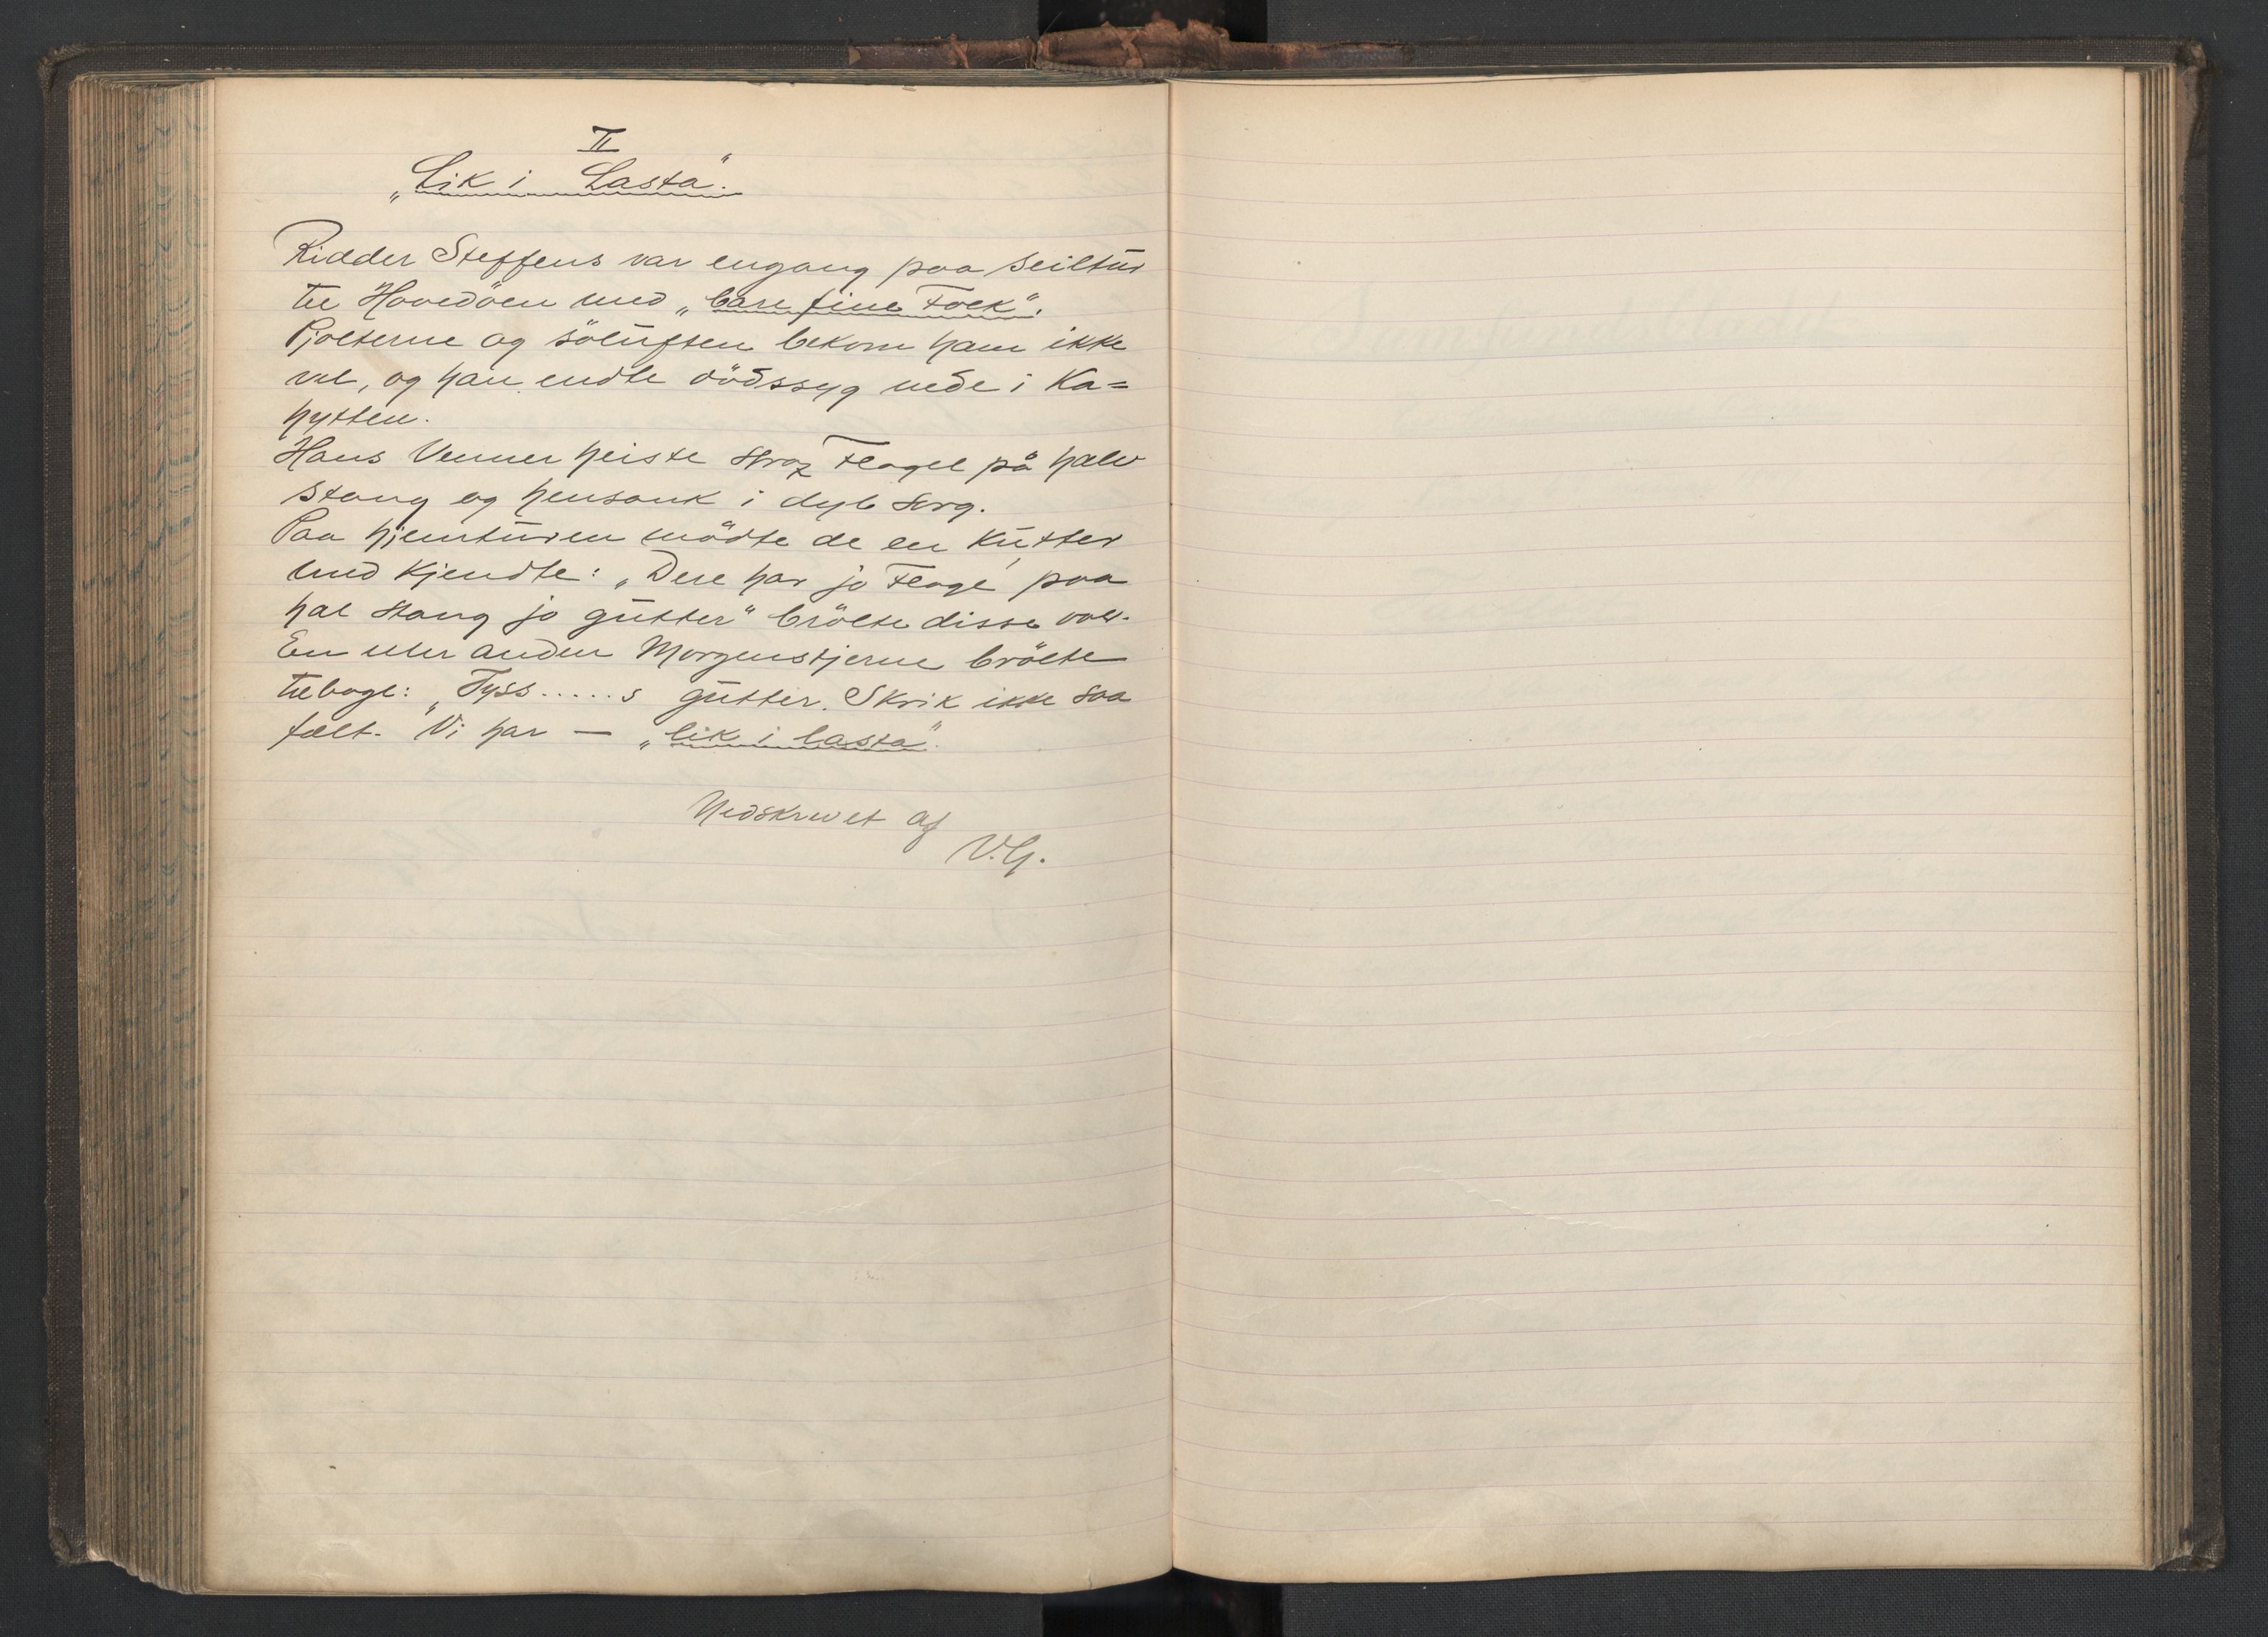 II
„Lik i Lasta".
Ridder Steffens var engang paa Seiltur
til Hovedöen med „bare fine Folk".
Pjolterne og söluften bekom ham ikke
vel, og han endte dödssyg nede i Ka=
hytten.
Hans Venner heiste strax Flaget på halv
stang og hensank i dyb sorg.
Paa hjemturen mödte de en Kutter
med Kjendte: „Dere har jo Flagé paa
hal stang jo gutter" brölte disse over.
En eller anden Morgenstjerne brölte
tilbage: „Tyss.....s gutter. Skrik ikke saa
fælt. Vi har — „lik i lasta".
Nedskrevet af
V.G.